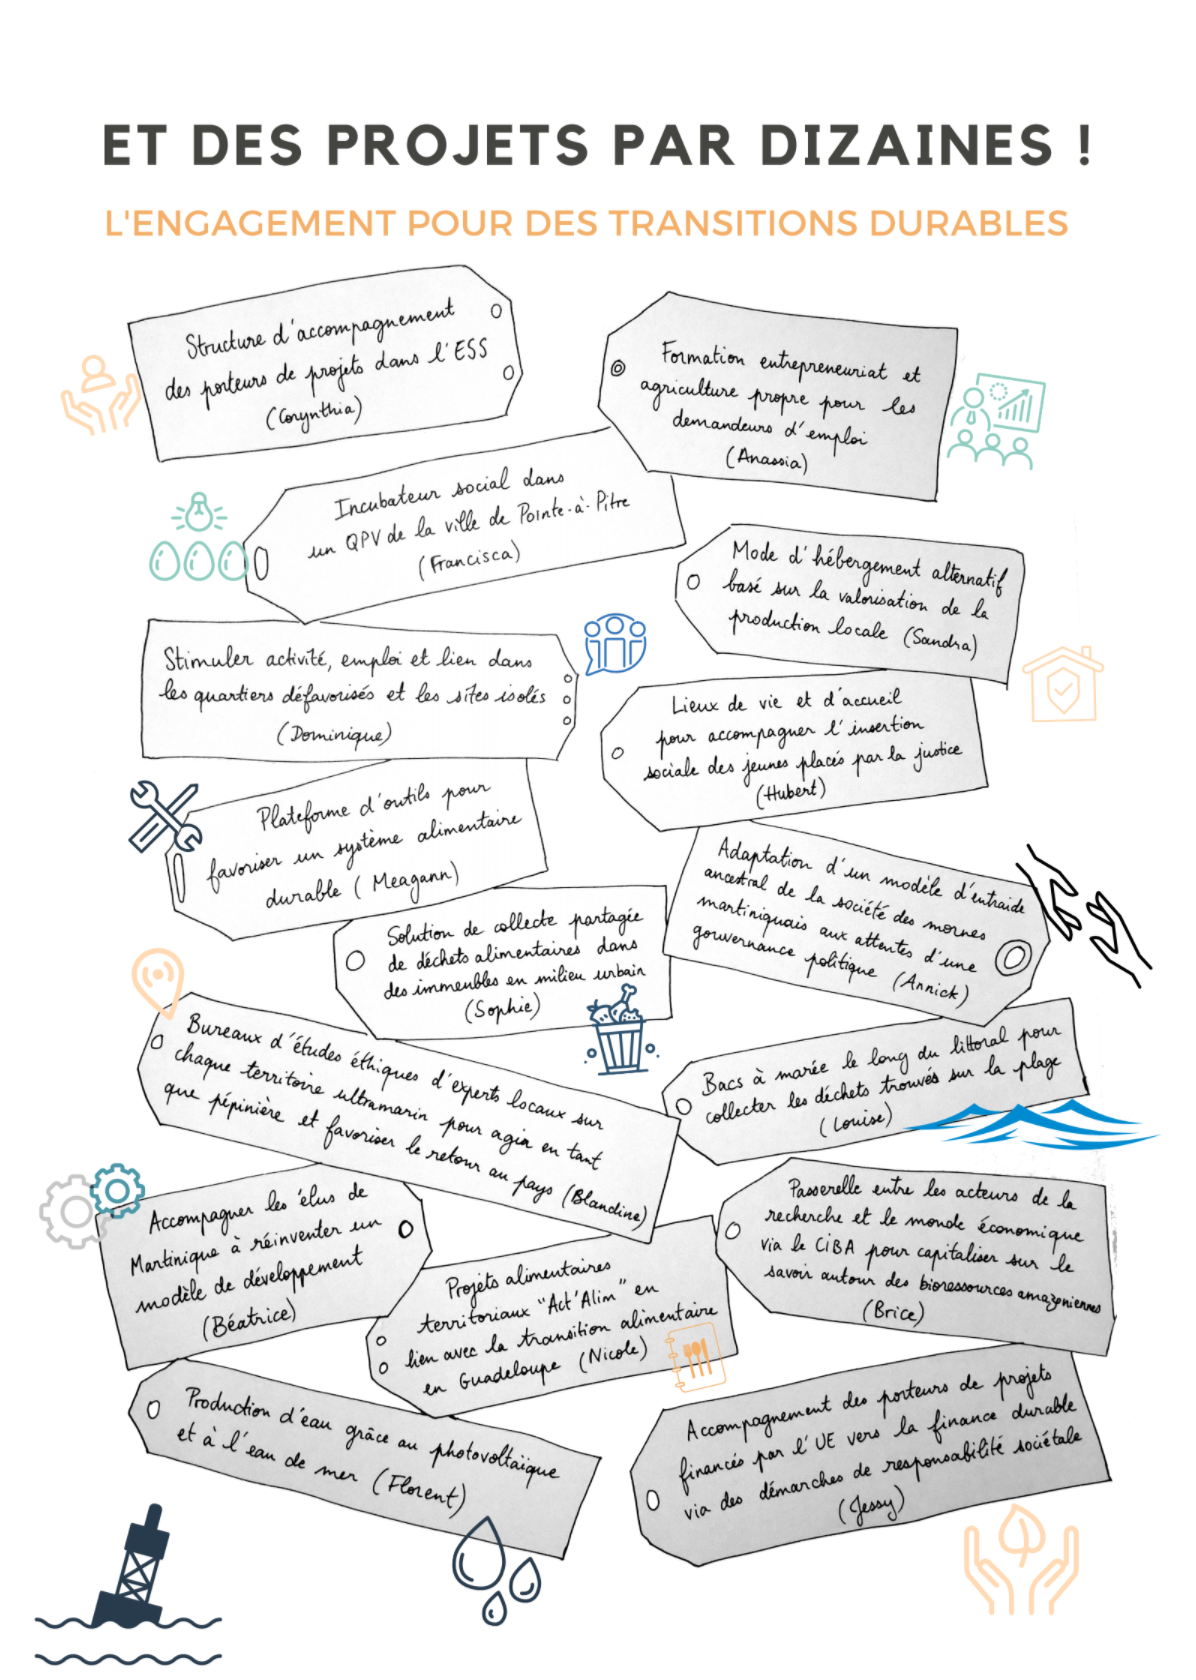 ET DES PROJETS PAR DIZAINES !
L'ENGAGEMENT POUR DES TRANSITIONS DURABLES
Structure d'accompagnement
des porteurs de projets dans l'ESS
(Corynthia)
Formation entrepreneuriat et
agriculture propre pour les
demandeurs d'emploi
(Anassia)
Incubateur social dans
un QPV de la ville de Pointe-à-Pitre
(Francisca)
Mode d'hébergement alternatif
basé sur la valorisation de la
production locale (Sandra)
Stimuler activité, emploi et lien dans
les quartiers défavorisés et les sites isolés
(Dominique)
Lieux de vie et d'accueil
pour accompagner l'insertion
sociale des jeunes placés par la justice
(Hubert)
Plateforme d'outils pour
favoriser un système alimentaire
durable (Meagann)
Adaptation d'un modèle d'entraide
ancestral de la société des mornes
martiniquais aux attentes d'une
gouvernance politique (Annick)
Solution de collecte partagée
de déchets alimentaires dans
des immeubles en milieu urbain
(Sophie)
Bureaux d'études éthiques d'experts locaux sur
chaque territoire ultramarin pour agir en tant
que pépinière et favoriser le retour au pays (Blandine)
Bacs à marée le long du littoral pour
collecter les déchets trouvés sur la plage
(Louise)
Accompagner les élus de
Martinique à réinventer un
modèle de développement
(Béatrice)
Passerelle entre les acteurs de la
recherche et le monde économique
via le CIBA pour capitaliser sur le
savoir autour des bioressources amazoniennes
(Brice)
Projets alimentaires
territoriaux "Act'Alim" en
lien avec la transition alimentaire
en Guadeloupe (Nicole)
Production d'eau grâce au photovoltaïque
et à l'eau de mer (Florent)
Accompagnement des porteurs de projets
financés par l'UE vers la finance durable
via des démarches de responsabilité sociétale
(Jessy)